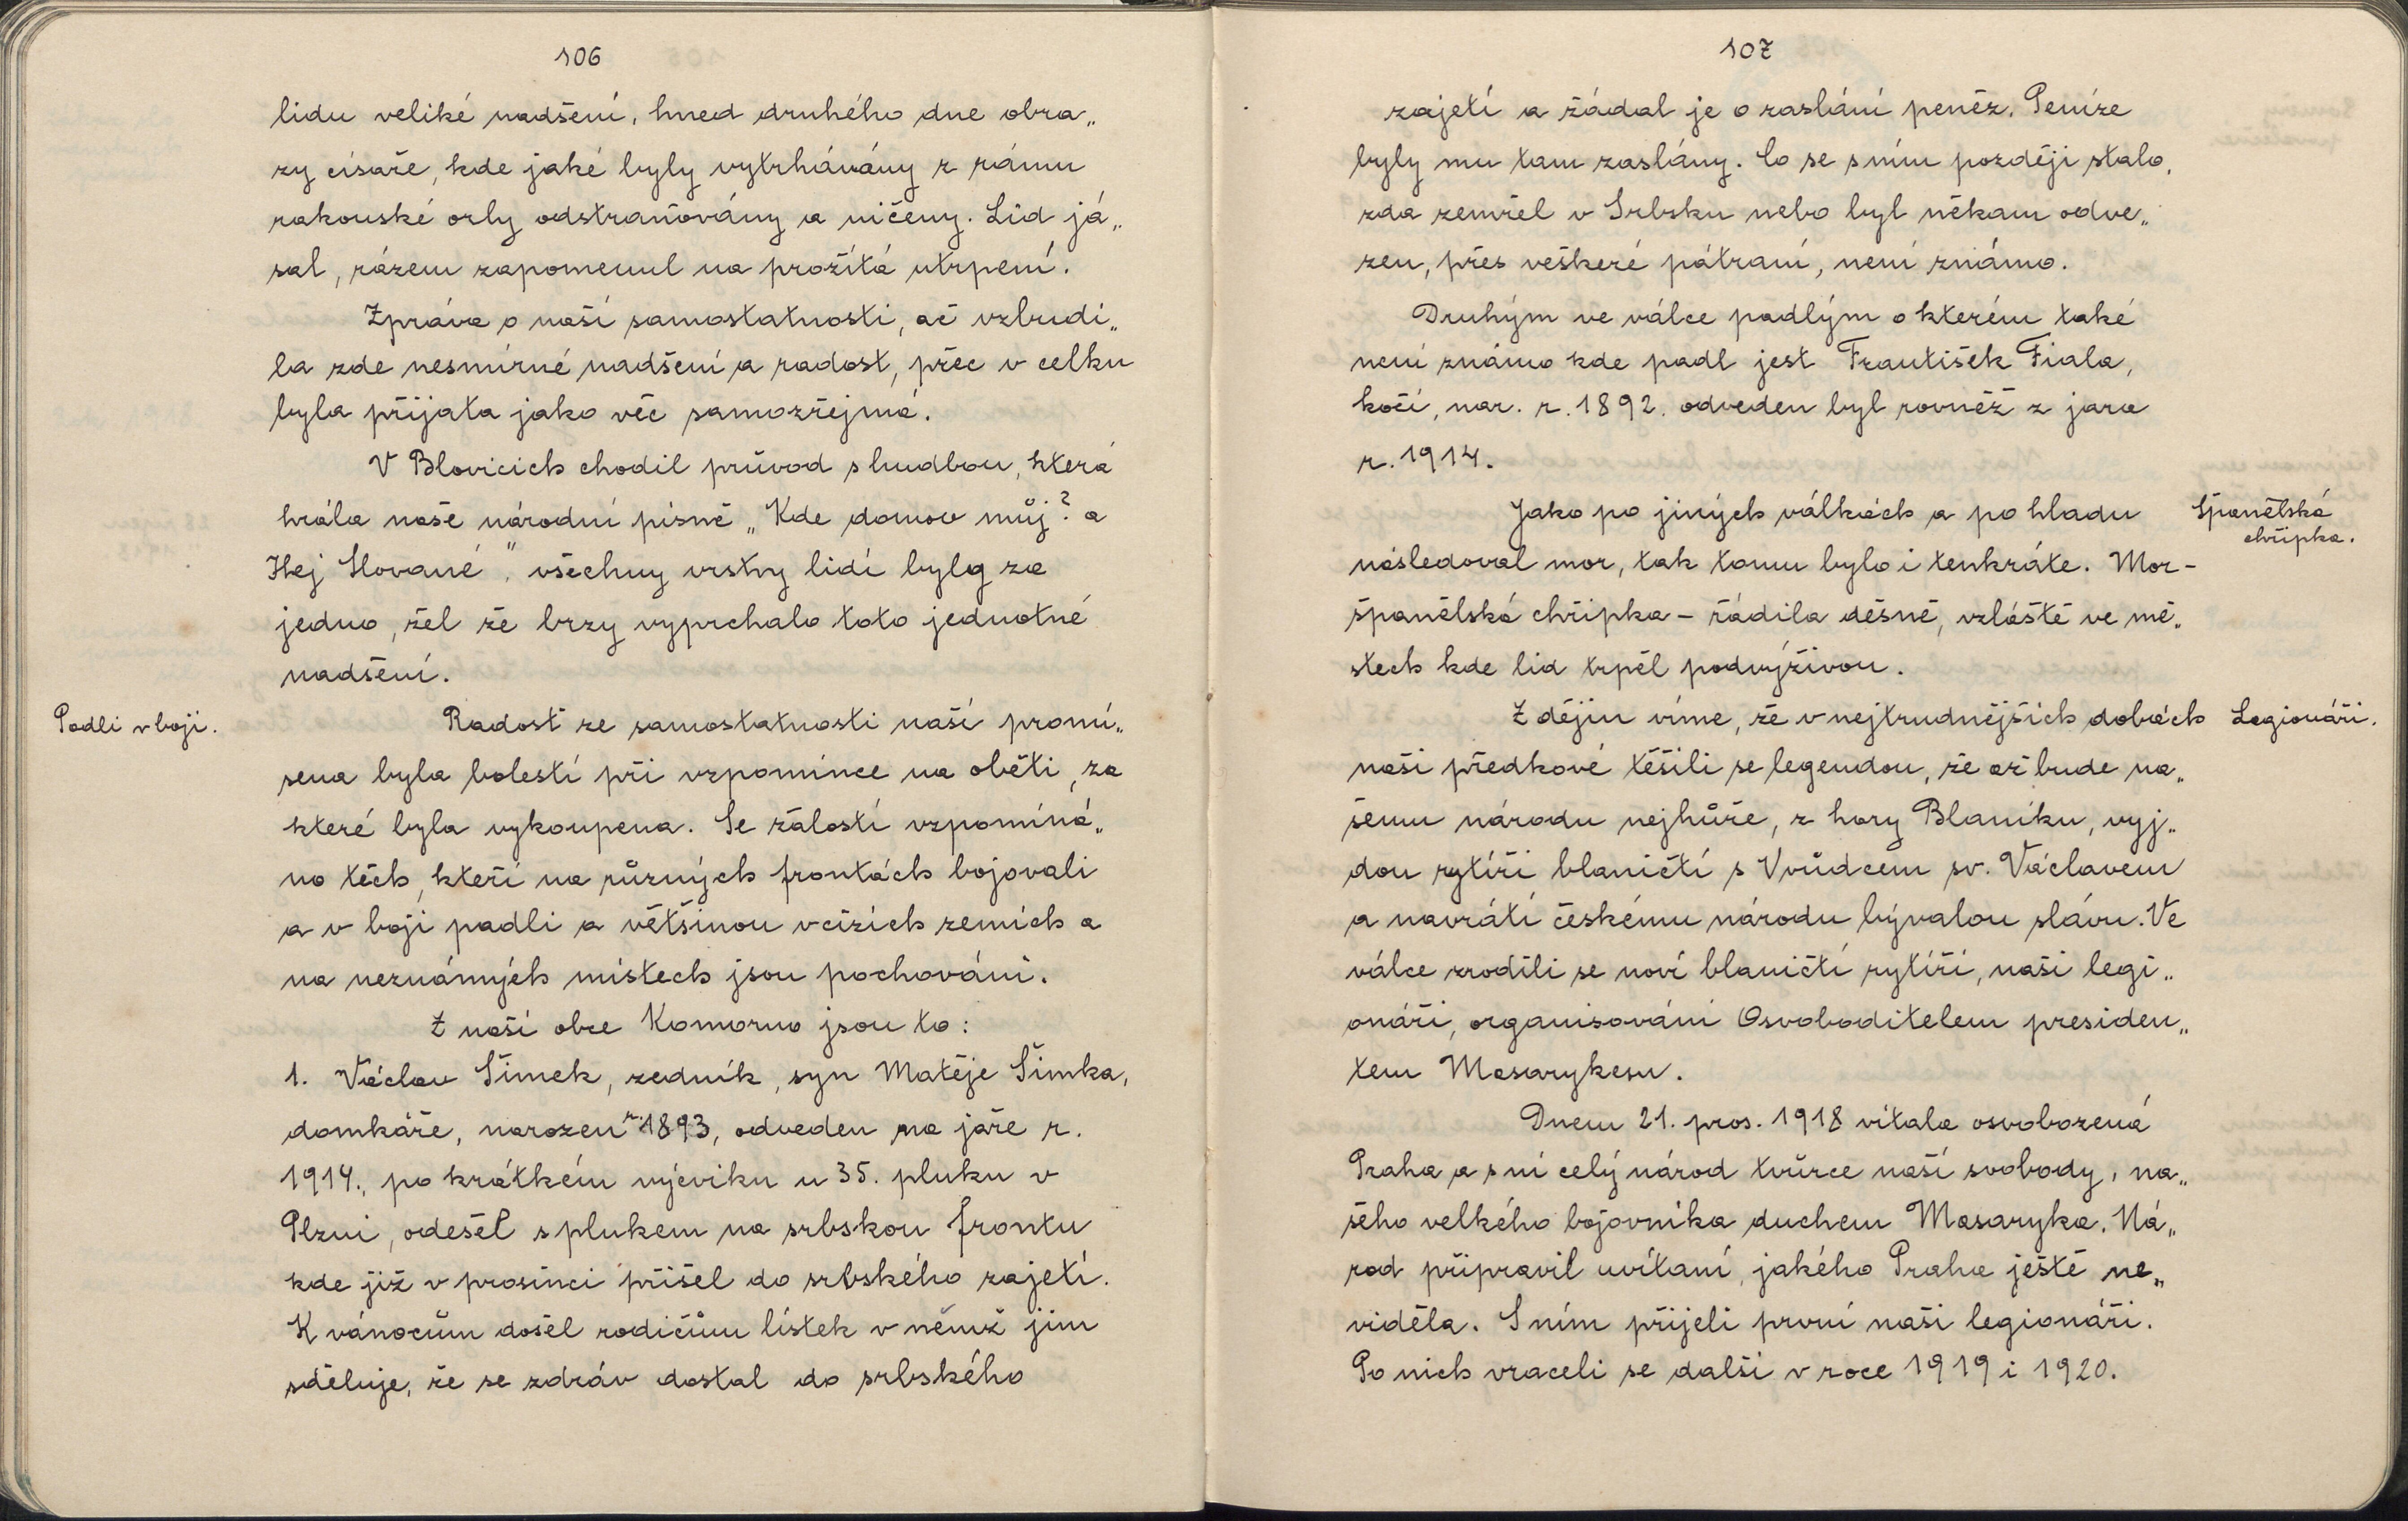 106
lidu veliké nadšení, hned druhého dne obra„
zy císaře, kde jaké byly vytrhávány z rámu
rakouské orly odstraňovány a ničeny. Lid já„
sal, rázem zapomenul na prožitá utrpení.
Zpráva o naší samostatnosti, ač vzbudi„
la zde nesmírné nadšení a radost, přec v celku
byla přijata jako věc samozřejmá.
V Blovicích chodil průvod s hudbou, která
hrála naše národní písně „Kde domov můj? a
Hej Slované", všechny vrstvy lidí byly za
jedno, žel že brzy vyprchalo toto jednotné
nadšení.
Padli v boji.
Radost ze samostatnosti naší promí„
sena byla bolestí při vzpomínce na oběti, za
které byla vykoupena. Se žalostí vzpomíná„
no těch, kteří na různých frontách bojovali
a v boji padli a většinou v cizích zemích a
na neznámých místech jsou pochováni.
Z naší obce Komorno jsou to:
1. Václav Šimek, zedník, syn Matěje Šimka,
domkáře, narozen r. 1893, odveden na jaře r.
1914., po krátkém výcviku u 35. pluku v
Plzni, odešel s plukem na srbskou frontu
kde již v prosinci přišel do srbského zajetí.
K vánocům došel rodičům lístek v němž jim
sděluje, že se zdráv dostal do srbského
107
zajetí a žádal je o zaslání peněz. Peníze
byly mu tam zaslány. Co se s ním později stalo,
zda zemřel v Srbsku nebo byl někam odve„
zen, přes veškeré pátraní, není známo.
Druhým ve válce padlým o kterém také
není známo kde padl jest František Fiala,
kočí, nar. r. 1892. odveden byl rovněž z jara
r. 1914.
Jako po jiných válkách a po hladu
Španělská
chřipka.
následoval mor, tak tomu bylo i tenkráte. Mor-
španělská chřipka - řádila děsně, vzláště ve mě„
stech kde lid trpěl podvýživou.
Z dějin víme, že v nejtrudnějších dobách
Legionáři.
naši předkové těšili se legendou, že až bude na„
šemu národu nejhůře, z hory Blaníku, vyj„
dou rytíři blaničtí s Vvůdcem sv. Václavem
a navrátí českému národu bývalou slávu. Ve
válce zrodili se noví blaničtí rytíři, naši legi„
onáři, organisováni Osvoboditelem presiden„
tem Masarykem.
Dnem 21. pros. 1918 vítala osvobozená
Praha a s ní celý národ tvůrce naší svobody, na„
šeho velkého bojovníka duchem Masaryka. Ná„
rod připravil uvítaní, jakého Praha ještě ne„
viděla. S ním přijeli první naši legionáři.
Po nich vraceli se další v roce 1919 i 1920.